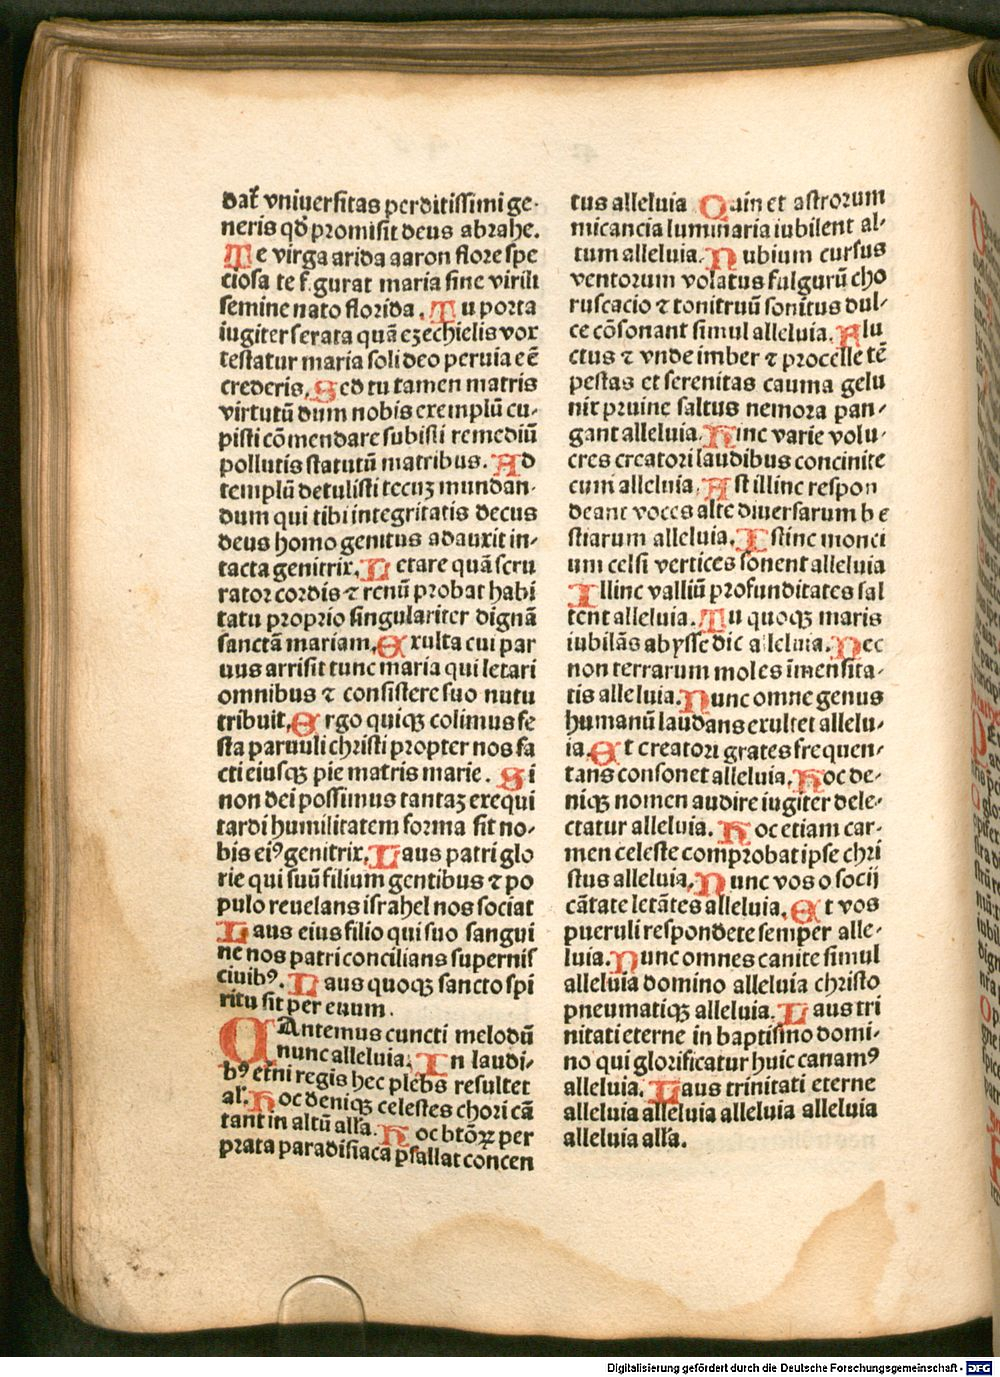 dat̃ vniuersitas perditissimi ge-
neris qd̃ promisit deus abrahe.
Te virga arida aaron flore spe
ciosa te f.gurat maria sine virili
semine nato florida. Tu porta
iugiter serata quā ezechielis vox
testatur maria soli deo peruia eē
crederis. Sed tu tamen matris
virtutū dum nobis exemplū cu-
pisti cōmendare subisti remediū
pollutis statutū matribus. Ad
templū detulisti tecuȝ mundan-
dum qui tibi integritatis decus
deus homo genitus adauxit in-
tacta genitrix. Letare quā scru
rator cordis ⁊ renū probat habi
tatu proprio singulariter dignā
sanctā mariam. Exulta cui par
uus arrisit tunc maria qui letari
omnibus ⁊ consistere suo nutu
tribuit. Ergo quiqȝ colimus fe
sta paruuli christi propter nos fa
cti eiusqȝ pie matris marie. Si
non dei possimus tantaȝ exequi
tardi humilitatem forma sit no-
bis ei⁹ genitrix. Laus patri glo
rie qui suū filium gentibus ⁊ po
pulo reuelans israhel nos sociat
Laus eius filio qui suo sangui
ne nos patri concilians supernis
ciuib⁹. Laus quoqȝ sancto spi
ritu sit per euum.
CAntemus cuncti melodū
nunc alleluia. In laudi-
b⁹ et̃ni regis hec plebs resultet
al'. Hoc deniqȝ celestes chori cā
tant in altū all'a. Hoc btōꝝ per
prata paradisiaca psallat concen
tus alleluia Quin et astrorum
micancia luminaria iubilent al-
tum alleluia. Nubium cursus
ventorum volatus fulgurū cho
ruscacio ⁊ tonitruū sonitus dul-
ce cōsonant simul alleluia. Flu
ctus ⁊ vnde imber ⁊ procelle tē
pestas et serenitas cauma gelu
nix pruine saltus nemora pan-
gant alleluia. Hinc varie volu-
cres creatori laudibus concinite
cum alleluia. Ast illinc respon
deant voces alte diuersarum be
stiarum alleluia. Istinc monci
um celsi vertices sonent alleluia
Illinc valliū profunditates sal
tent alleluia. Tu quoqȝ maris
iubilās abysse dic alleluia. Nec
non terrarum moles īmensita-
tis alleluia. Nunc omne genus
humanū laudans exultet allelu-
ia. Et creatori grates frequen-
tans consonet alleluia. Hoc de-
niqȝ nomen audire iugiter dele-
ctatur alleluia. Hoc etiam car-
men celeste comprobat ipse chri
stus alleluia. Nunc vos o socij
cātate letātes alleluia. Et vos
pueruli respondete semper alle-
luia. Nunc omnes canite simul
alleluia domino alleluia christo
pneumatiqȝ alleluia. Laus tri
nitati eterne in baptismo domi-
no qui glorificatur huic canam⁹
alleluia. Laus trinitati eterne
alleluia alleluia alleluia alleluia
alleluia all'a.
Digitalisierung gefördert durch die Deutsche Forschungsgemeinschaft - DFG